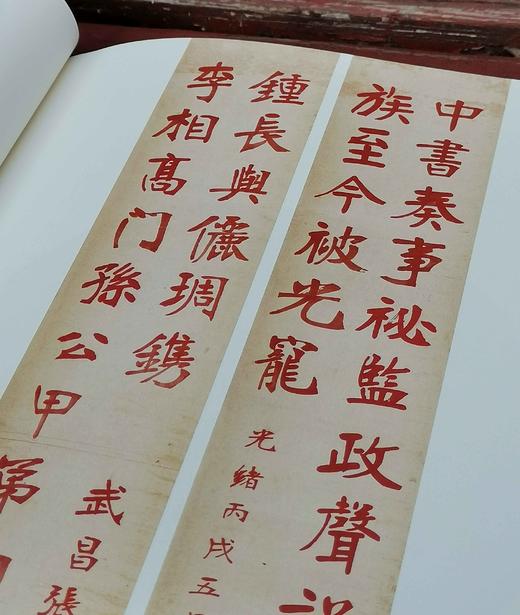 中書奏事祕監政聲
族至今被光寵
光緒丙戌五
鍾長與儷琱鐫
李相髙門孫公甲第
武昌張